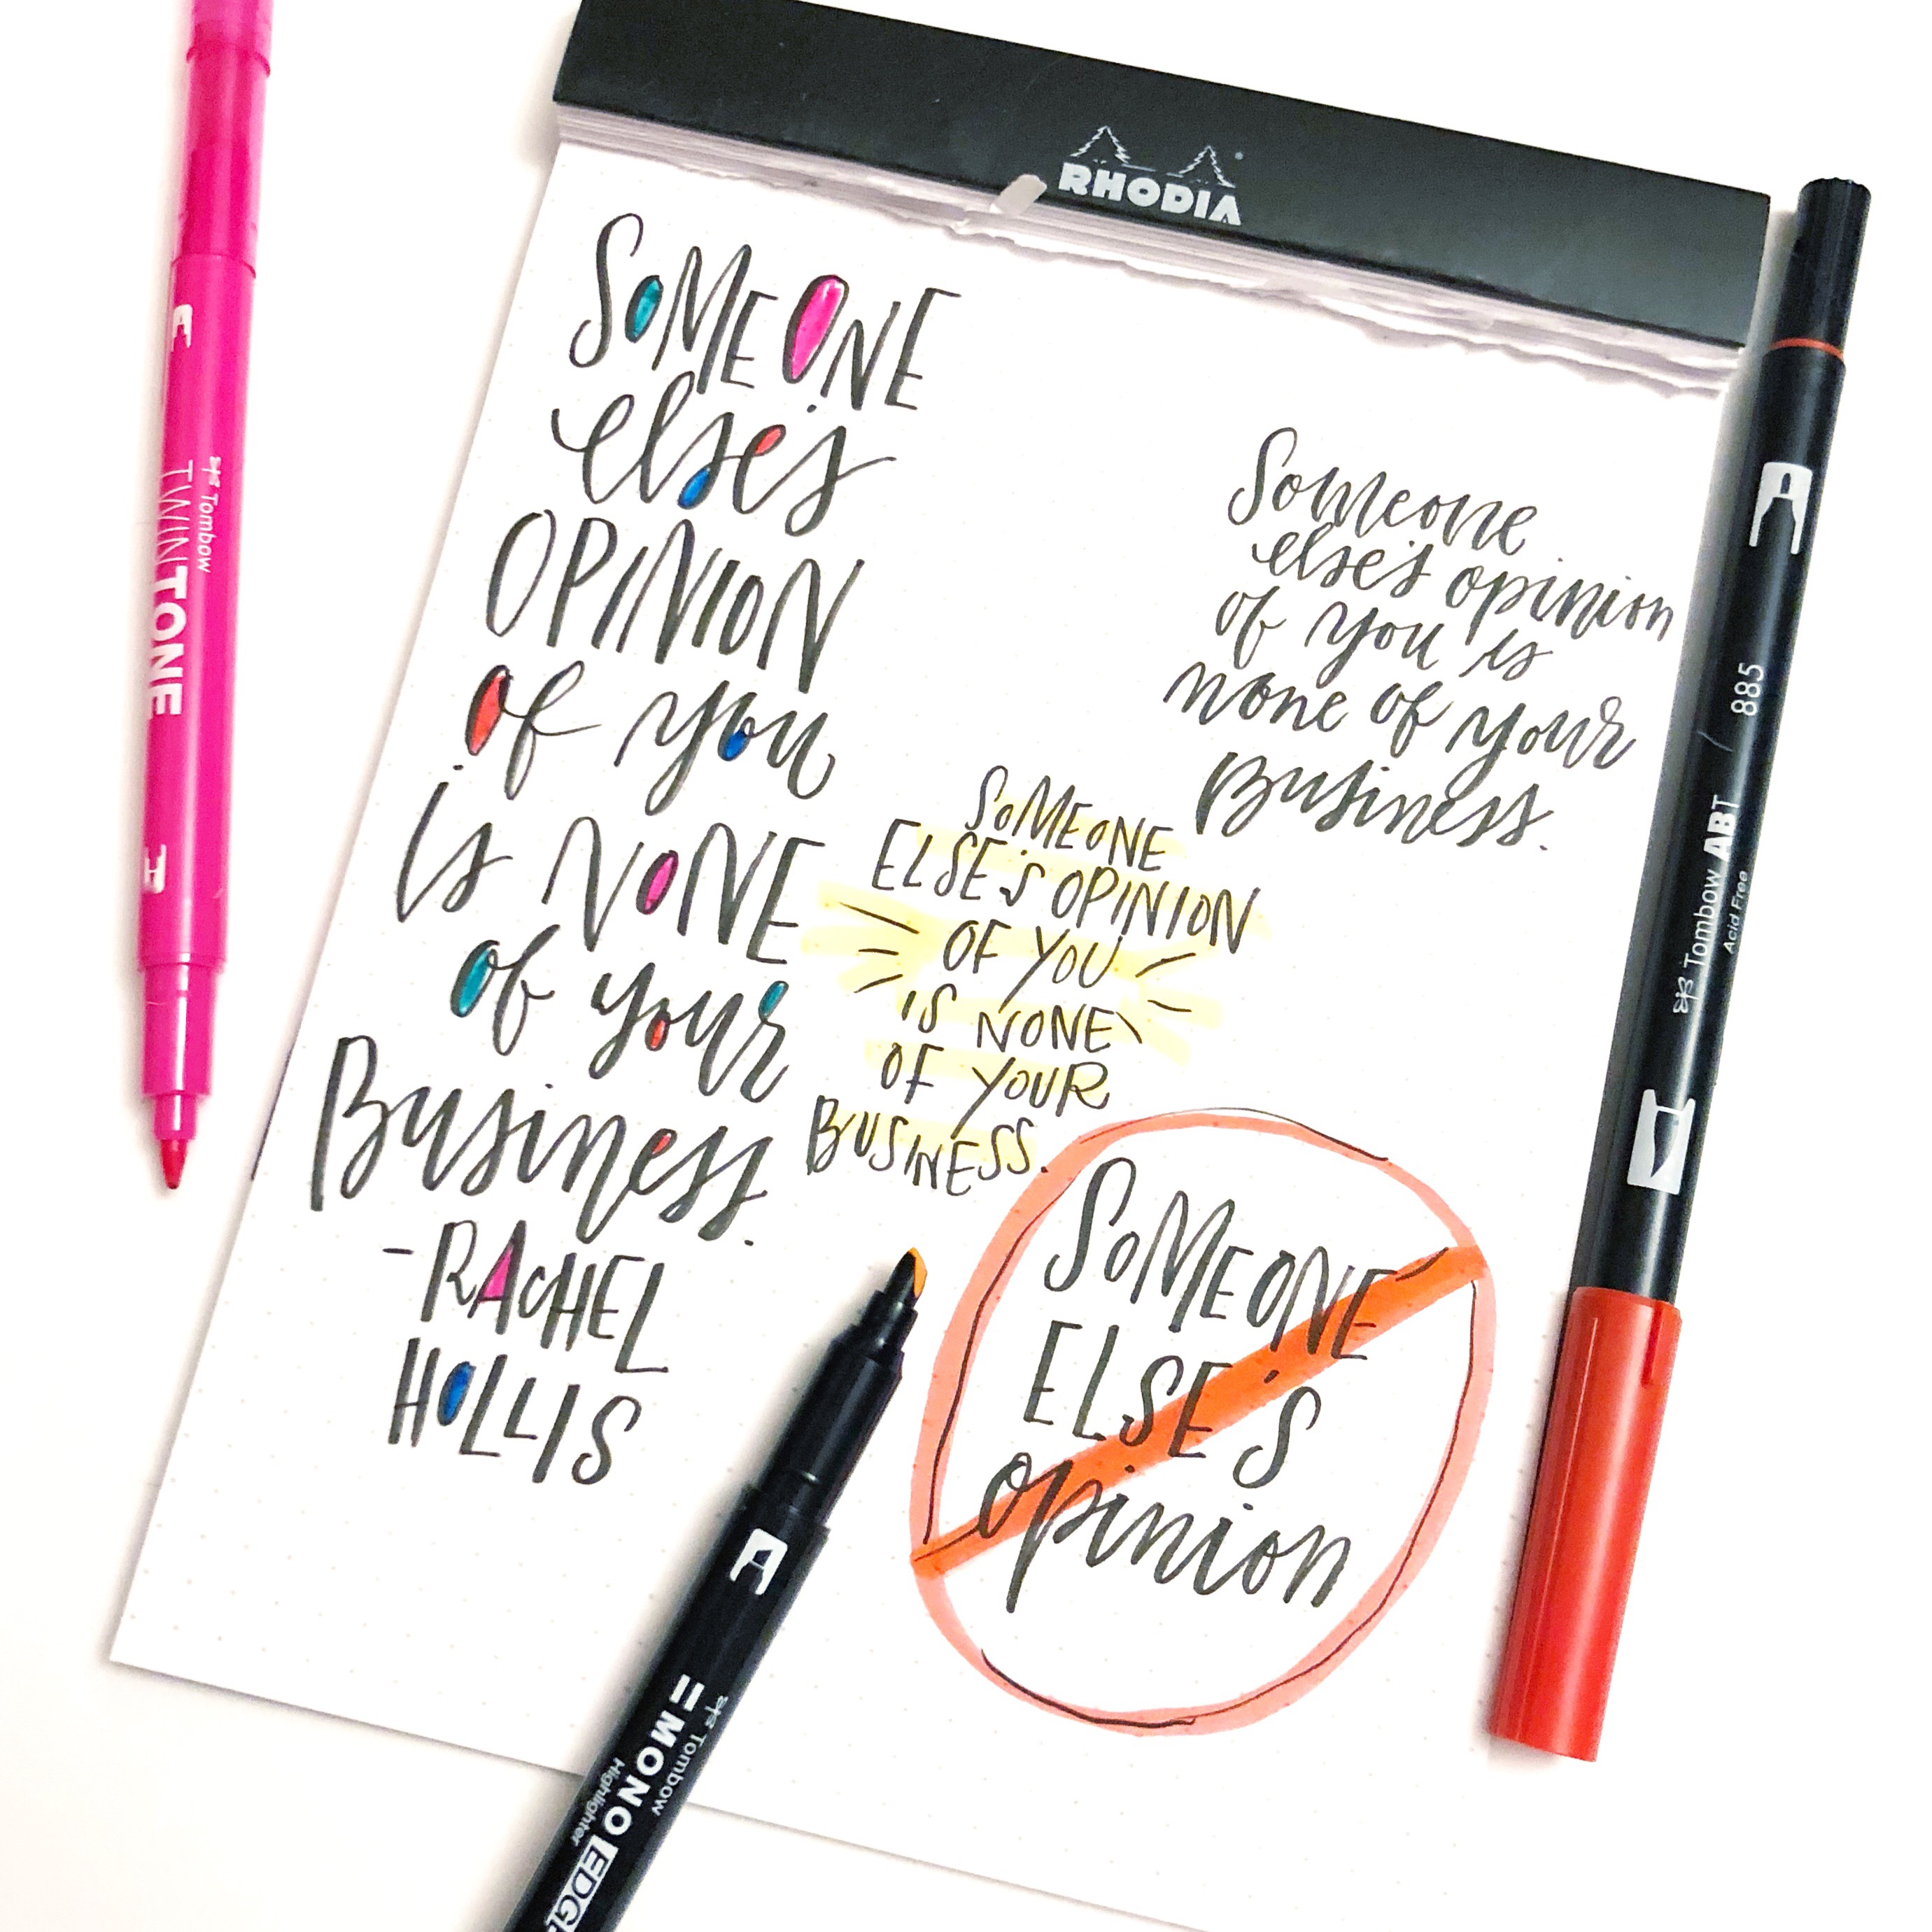 RHODIA
SOMEONE
else's
OPINION
of you
is NONE
of your
Business.
-RACHEL
HOLLIS
Someone
else's opinion
of you is
none of your
Business.
SOMEONE
ELSE'S OPINION
OF YOU
IS NONE
OF YOUR
BUSINESS.
SOMEONE
ELSE'S
opinion
Tombow
TWINTONE
885
Tombow ABT
Acid Free
Tombow
MONO EDGE
Highlighter